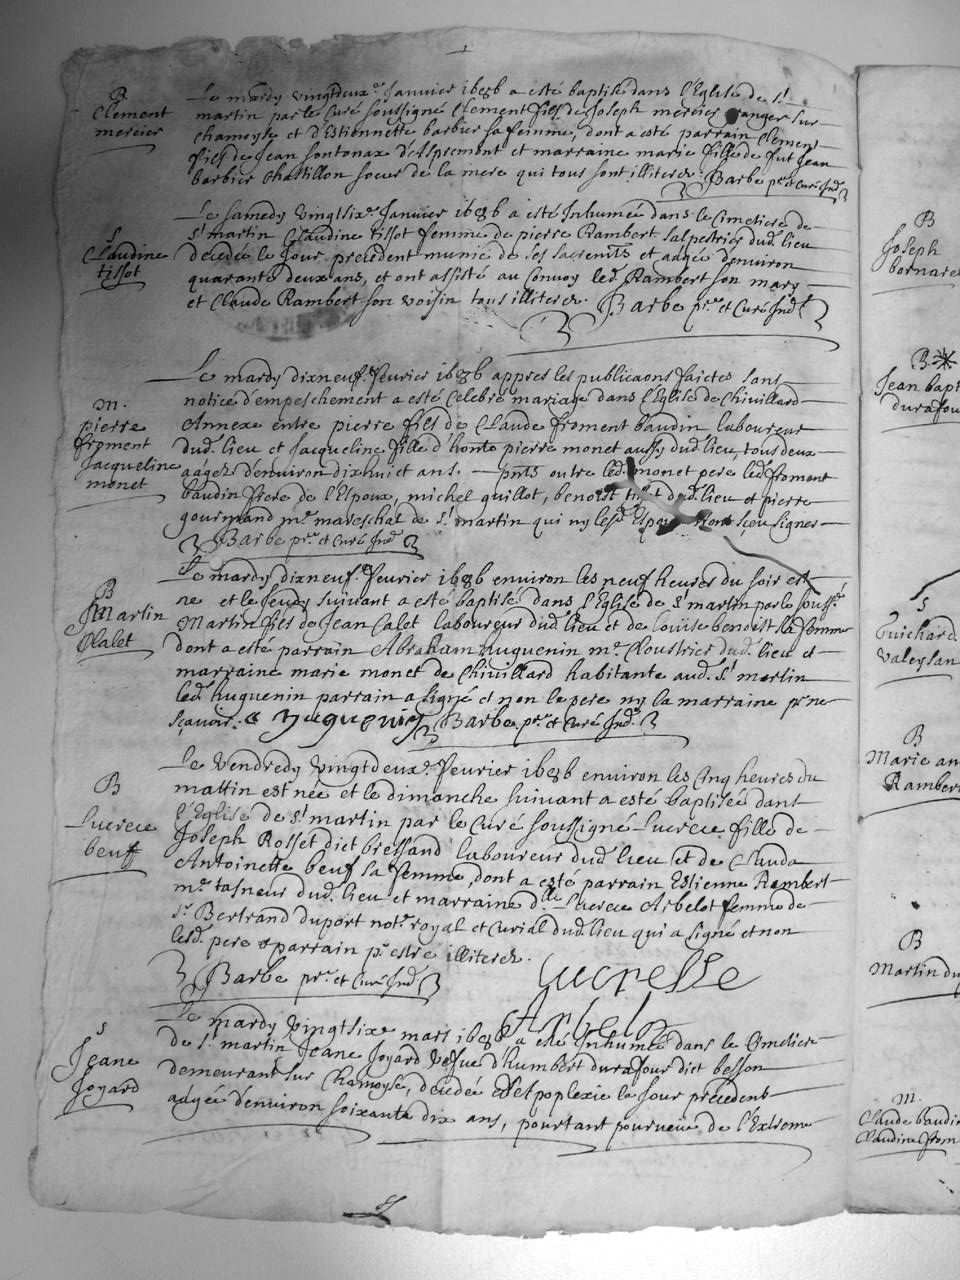 B
Clement
mercier
Le mardy vingtdeux.e Janvier 1686 a esté baptisé dans l'Eglise de St
martin par le Curé soussigné Clement fils de Joseph mercier granger sur
chamoyse et d'Estiennette barbier sa femme, dont a esté parrain Clement
fils de Jean sontonax d'Aspremont et marraine marie fille de fut Jean
barbier Chastillon soeur de la mere qui tous sont illiterez. Barbe pr. et Curé Ind.
S
Claudine
tissot
Le samedy vingtsix.e Janvier 1686 a esté Inhumée dans le Cimetiere de
St martin Claudine tissot femme de pierre Rambert salpestrier dud. lieu
decedée le Jour precedent munie de ses sacremts et aagée denviron
quarante deux ans, et ont assisté au Convoy led. Rambert son mary
et Claude Rambert son voisin tous illiterez. Barbe pr. et Curé Ind.
m.
pierre
froment
Jacqueline
monet
Le mardy dixneuf.e fevrier 1686 appres les publicaons faictes sans
notice d'empeschement a esté Celebré mariage dans l'Eglise de Chivillard
Annexe entre pierre fils de Claude froment baudin laboureur
dud. lieu et Jacqueline fille d'honte pierre monet aussy dud. lieu, tous deux
aagez denviron dixhuict ans. pnts outre led. monet pere led. froment
baudin frere de l'Espoux, michel quillot, benoist dud. lieu et pierre
gourmand me. mareschal de St martin qui ny lesd. n'ont sçeu signer
Barbe pr. et Curé Ind.
B
Martin
Calet
Le mardy dixneuf.e fevrier 1686 environ les neuf heures du soir est
né et le Jeudy suivant a esté baptisé dans l'Eglise de St martin par le souss.é
Martin fils de Jean Calet laboureur dud. lieu et de Louise benoist sa femme
dont a esté parrain Abraham huguenin me. Cloustrier dud. lieu et
marraine marie monet de Chivillard habitante aud. St martin
led. huguenin parrain a signé et non le pere ny la marraine pr ne
sçavoir. a huguenin Barbe pr. et Curé Ind.
B
Lucrece
beuf
Le Vendredy vingtdeux.e fevrier 1686 environ les Cinq heures du
mattin est née et le dimanche suivant a esté baptisée dans
l'Eglise de St martin par le Curé soussigné Lucrece fille de
Joseph Rosset dict bressand laboureur dud. lieu et de Clauda
Antoinette beuf sa femme, dont a esté parrain Estienne Rambert
me. tasneur dud. lieu et marraine dlle Lucrece Arbelot femme de
Sr. Bertrand duport notr. royal et Curial dud. lieu qui a signé et non
lesd. pere et parrain pr estre illiterez.
Barbe pr. et Curé Ind.
Lucresse
Arbelot
S
Jeane
Joyard
Le mardy vingtsix.e mars 1686 a esté Inhumée dans le Cimetiere
de St martin Jeane Joyard vefue d'humbert durafour dict besson
demeurant sur Chamoyse, decedée d'Apoplexie le Jour precedent
aagée denviron soixante dix ans, pourtant pourveüe de l'Extreme
B
Joseph
bornarel
B
Jean bapt
durafou
S
Guichard
Valeysan
B
Marie an
Rambert
B
Martin du
m.
Claude baudin
Claudine from